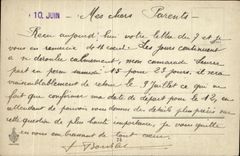 10. JUIN - Mes chers Parents -
Recu aujourd'hui votre lettre du 7 et je
vous en remercie. Les jours continuent
à se dérouler calmement, mon camarade
part en perm samedi 15 pour 23 jours, il sera
de retour le 9 Juillet ce qui ne
fait que confirmer ma date de départ pour le 12, en
attendant de pouvoir vous donner des détails plus précis sur
cette question de plus haute importance, je vous quitte
en vous embrassant de tout cœur.